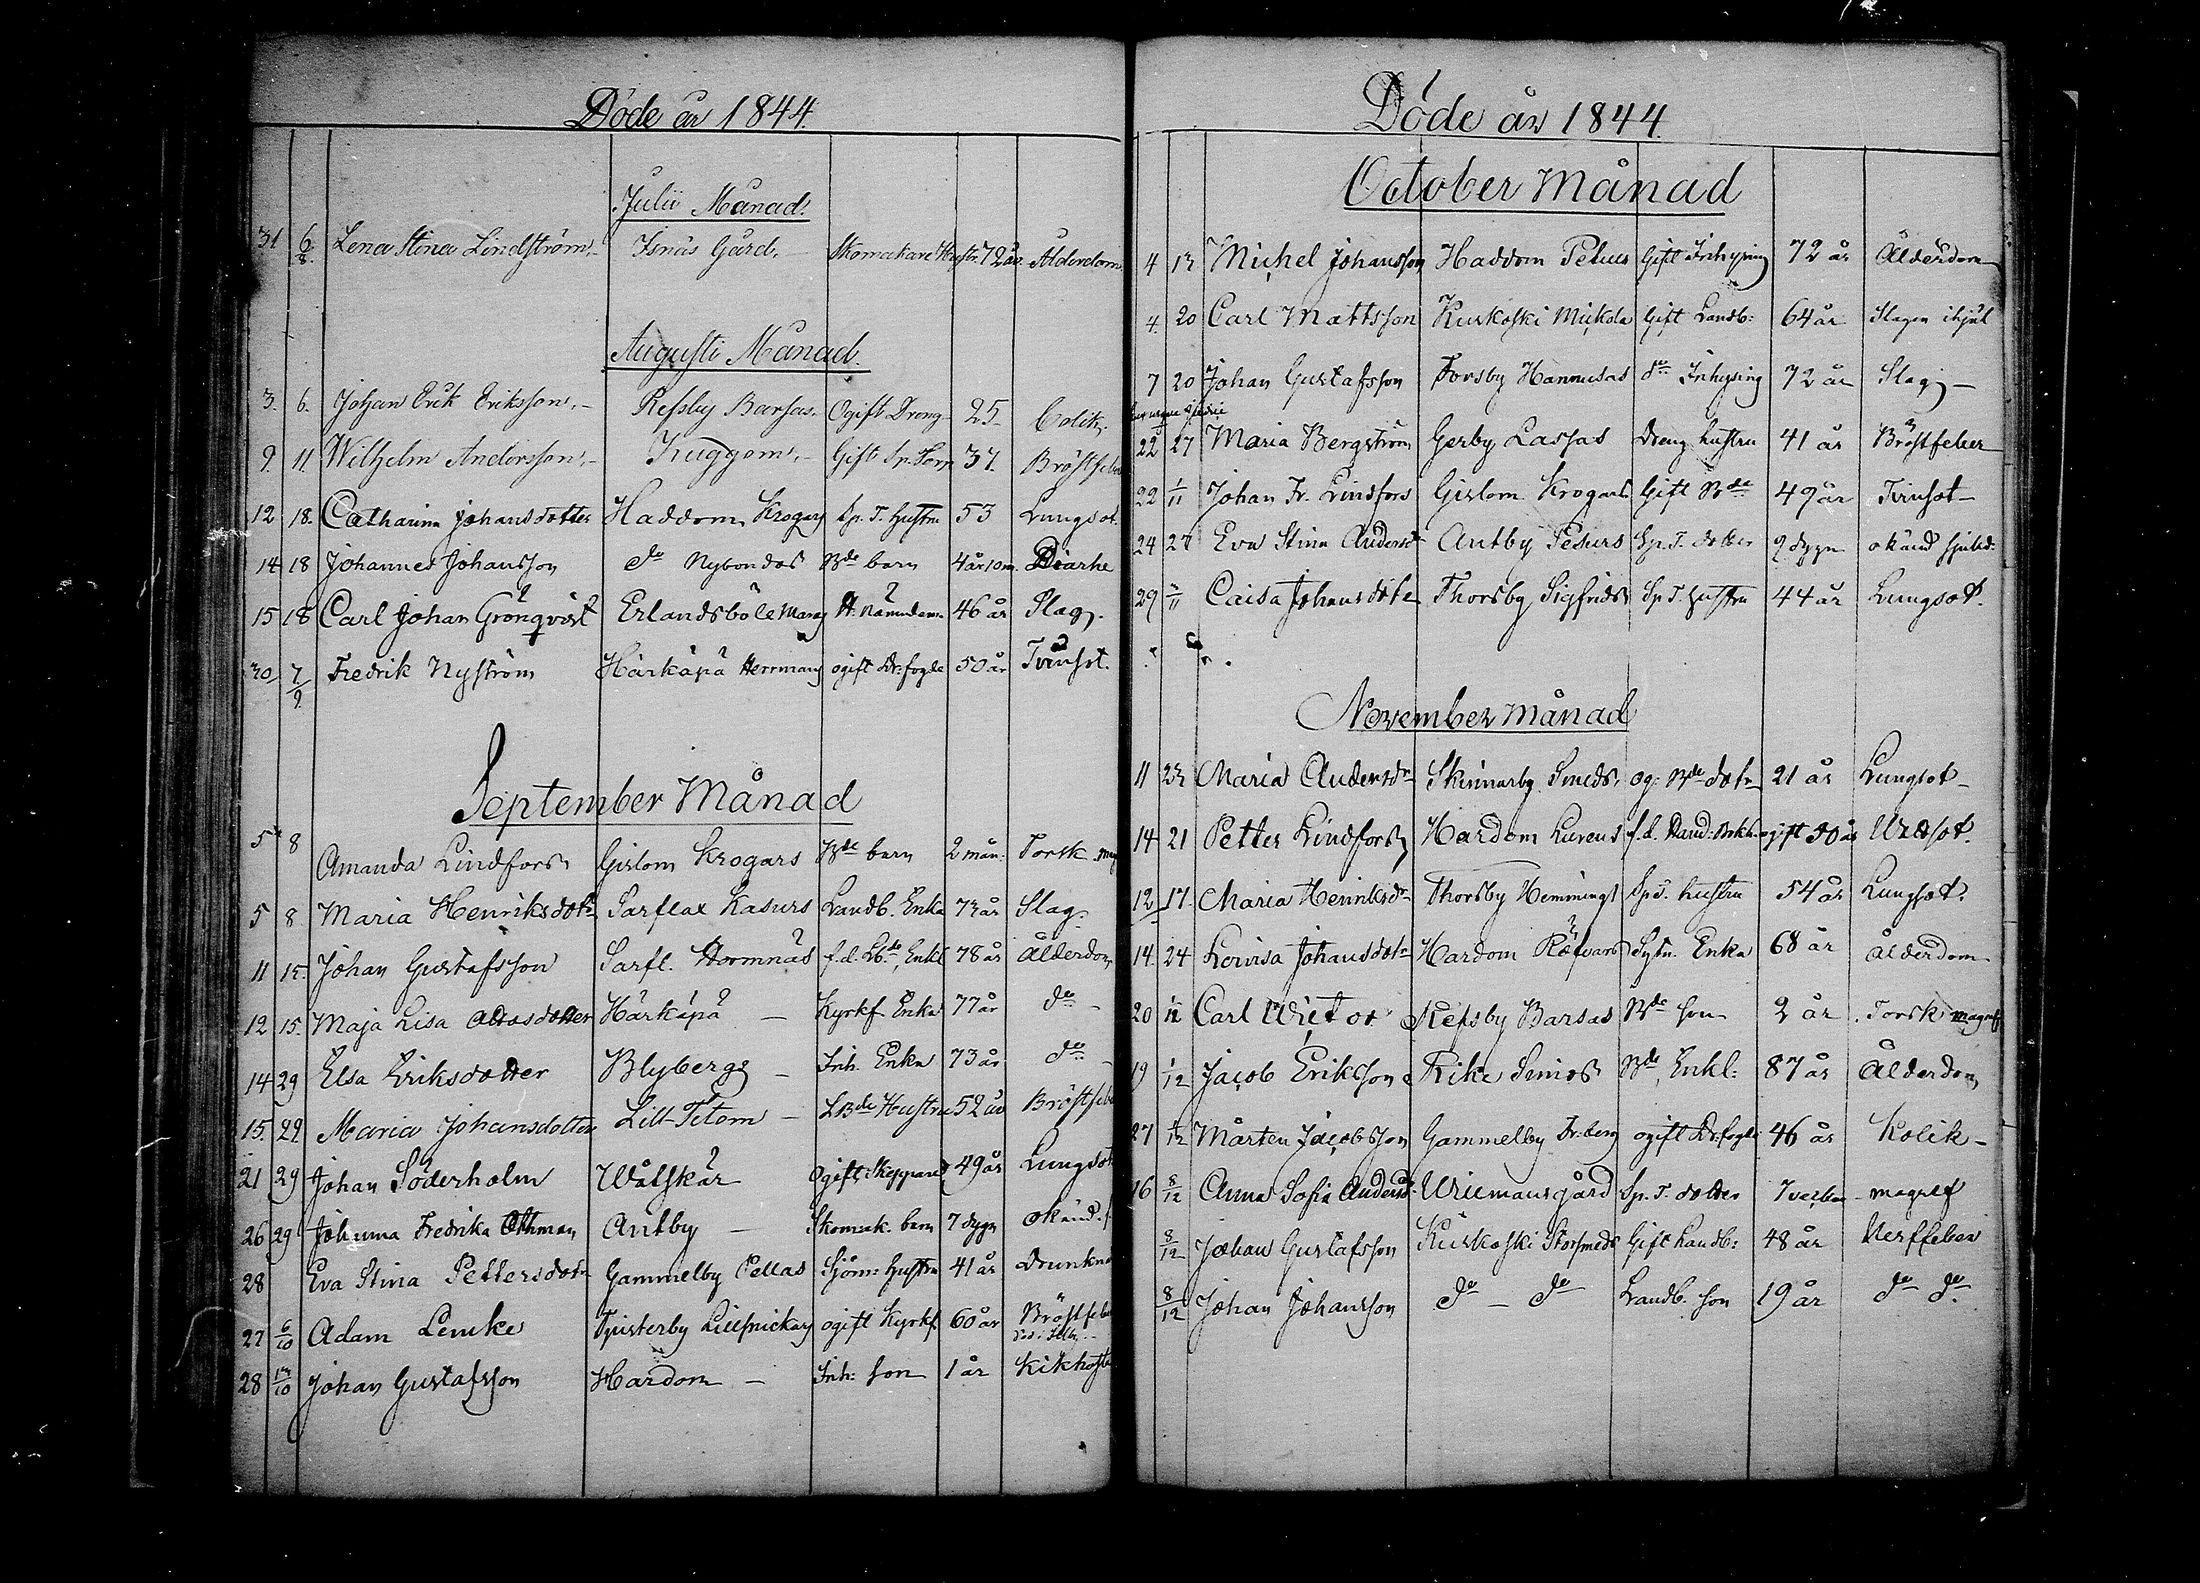 Döde år 1844.
Julii Månad.
31 6/8. Lena Stina Lindström. Isnäs Gård. Skomakare Hustr. 72 år. Ålderdom.
Augusti Månad.
3. 6. Johan Erik Eriksson. Refsby Barsas. Ogift Dreng 25 Colik.
9. 11. Wilhelm Andersson. Kuggom. Gift Sp. Torp 37. Bröstfeb
12 18. Catharina Johansdotter Haddom Krogars Sp. T. Hustru 53 Lungsot.
14 18 Johannes Johansson do Nybondas Bde barn 4 år 10 m. Diarhe
15 18 Carl Johan Grönqvist Erlandsböle H. Nämndem. 46 år Slag.
30 7/9. Fredrik Nyström Härkäpä Herrmans ogift Dr: fogde 50 år Tvinsot.
September Månad
5 8 Amanda Lindfors Gislom Krogars Bde barn 2 mån. Torsk
5 8 Maria Henriksdotr Sarflax Kasurs Landb. Enka 73 år Slag.
11 15. Johan Gustafsson Sarfl. Hormnäs f.d. Lbde, Enkl 78 år Ålderdom
12 15. Maja Lisa dotter Härkäpä Kyrkf. Enka 77 år do
14 29 Elsa Eriksdotter Blybergs Inh. Enka 73 år do
15. 29. Maria Johansdotter Lill-Tetom LBde Hustru 52 år Bröstfeb
21 29 Johan Söderholm Wåtskär Ogift, Skeppare 49 år Lungsot
26 29 Johanna Fredrika Öhman Antby Skomak. barn 7 dygn okänd.
28 Eva Stina Pettersdotr Gammelby Pellas Sjöm: Hustru 41 år drunkn
27 6/10 Adam Lemke Tjusterby Lillsnickars ogift Kyrkf. 60 år Bröstfeb
28 13/10 Johan Gustafsson Hardom Inh: son 1 år Kikhosta
Döde år 1844.
October Månad
4 13 Michel Johansson Haddom Petars Gift Inhysing 72 år Ålderdom
4. 20 Carl Mattsson Kuskoski Mickola Gift Landb: 64 år Slagen ihjäl
7 20 Johan Gustafsson Forsby Hannusas do Inhysing 72 år Slag
22 27 Maria Bergström Gerby Lassas Dreng hustru 41 år Bröstfeber
22 1/11 Johan Fr. Lindfors Gislom Krogars Gift Bde 49 år Tvinsot
24 27 Eva Stina Andersdr Antby Pesurs Sp. T. dotter 9 dygn okänd sjukd:
29 3/11 Caisa Johansdote Thorsby Sigfrids Sp. T. Hustru 44 år Lungsot.
November månad
11 23 Maria Andersdr Skinnarby Smeds. og: Bde dotr 21 år Lungsot
14 21 Petter Lindfors Hardom Lurens f.d. ogift 50 år
12 17. Maria Henriksdr Thorsby Hemmings Sp T. hustru 54 år Lungsot.
14. 24 Lovisa Johansdotr Hardom Räfvars Sytn. Enka 68 år Ålderdom
20 1/12 Carl Wictor Refsby Barsas Bde son 2 år Torsk magref
19 1/12 Jacob Eriksson Rike Simos Bde, Enkl: 87 år Ålderdom
27 1/12 Mårten Jacobsson Gammelby ogift Dr: fogde 46 år Kolik
16 8/12 Anna Sofia Andersdr Uriemansgård Sp. T. dotter 7 veckor magref
8/12 Johan Gustafsson Kuskoski Storsmeds Gift Landb: 48 år Nerffeber
8/12 Johan Johansson do do Landb. son 19 år do do